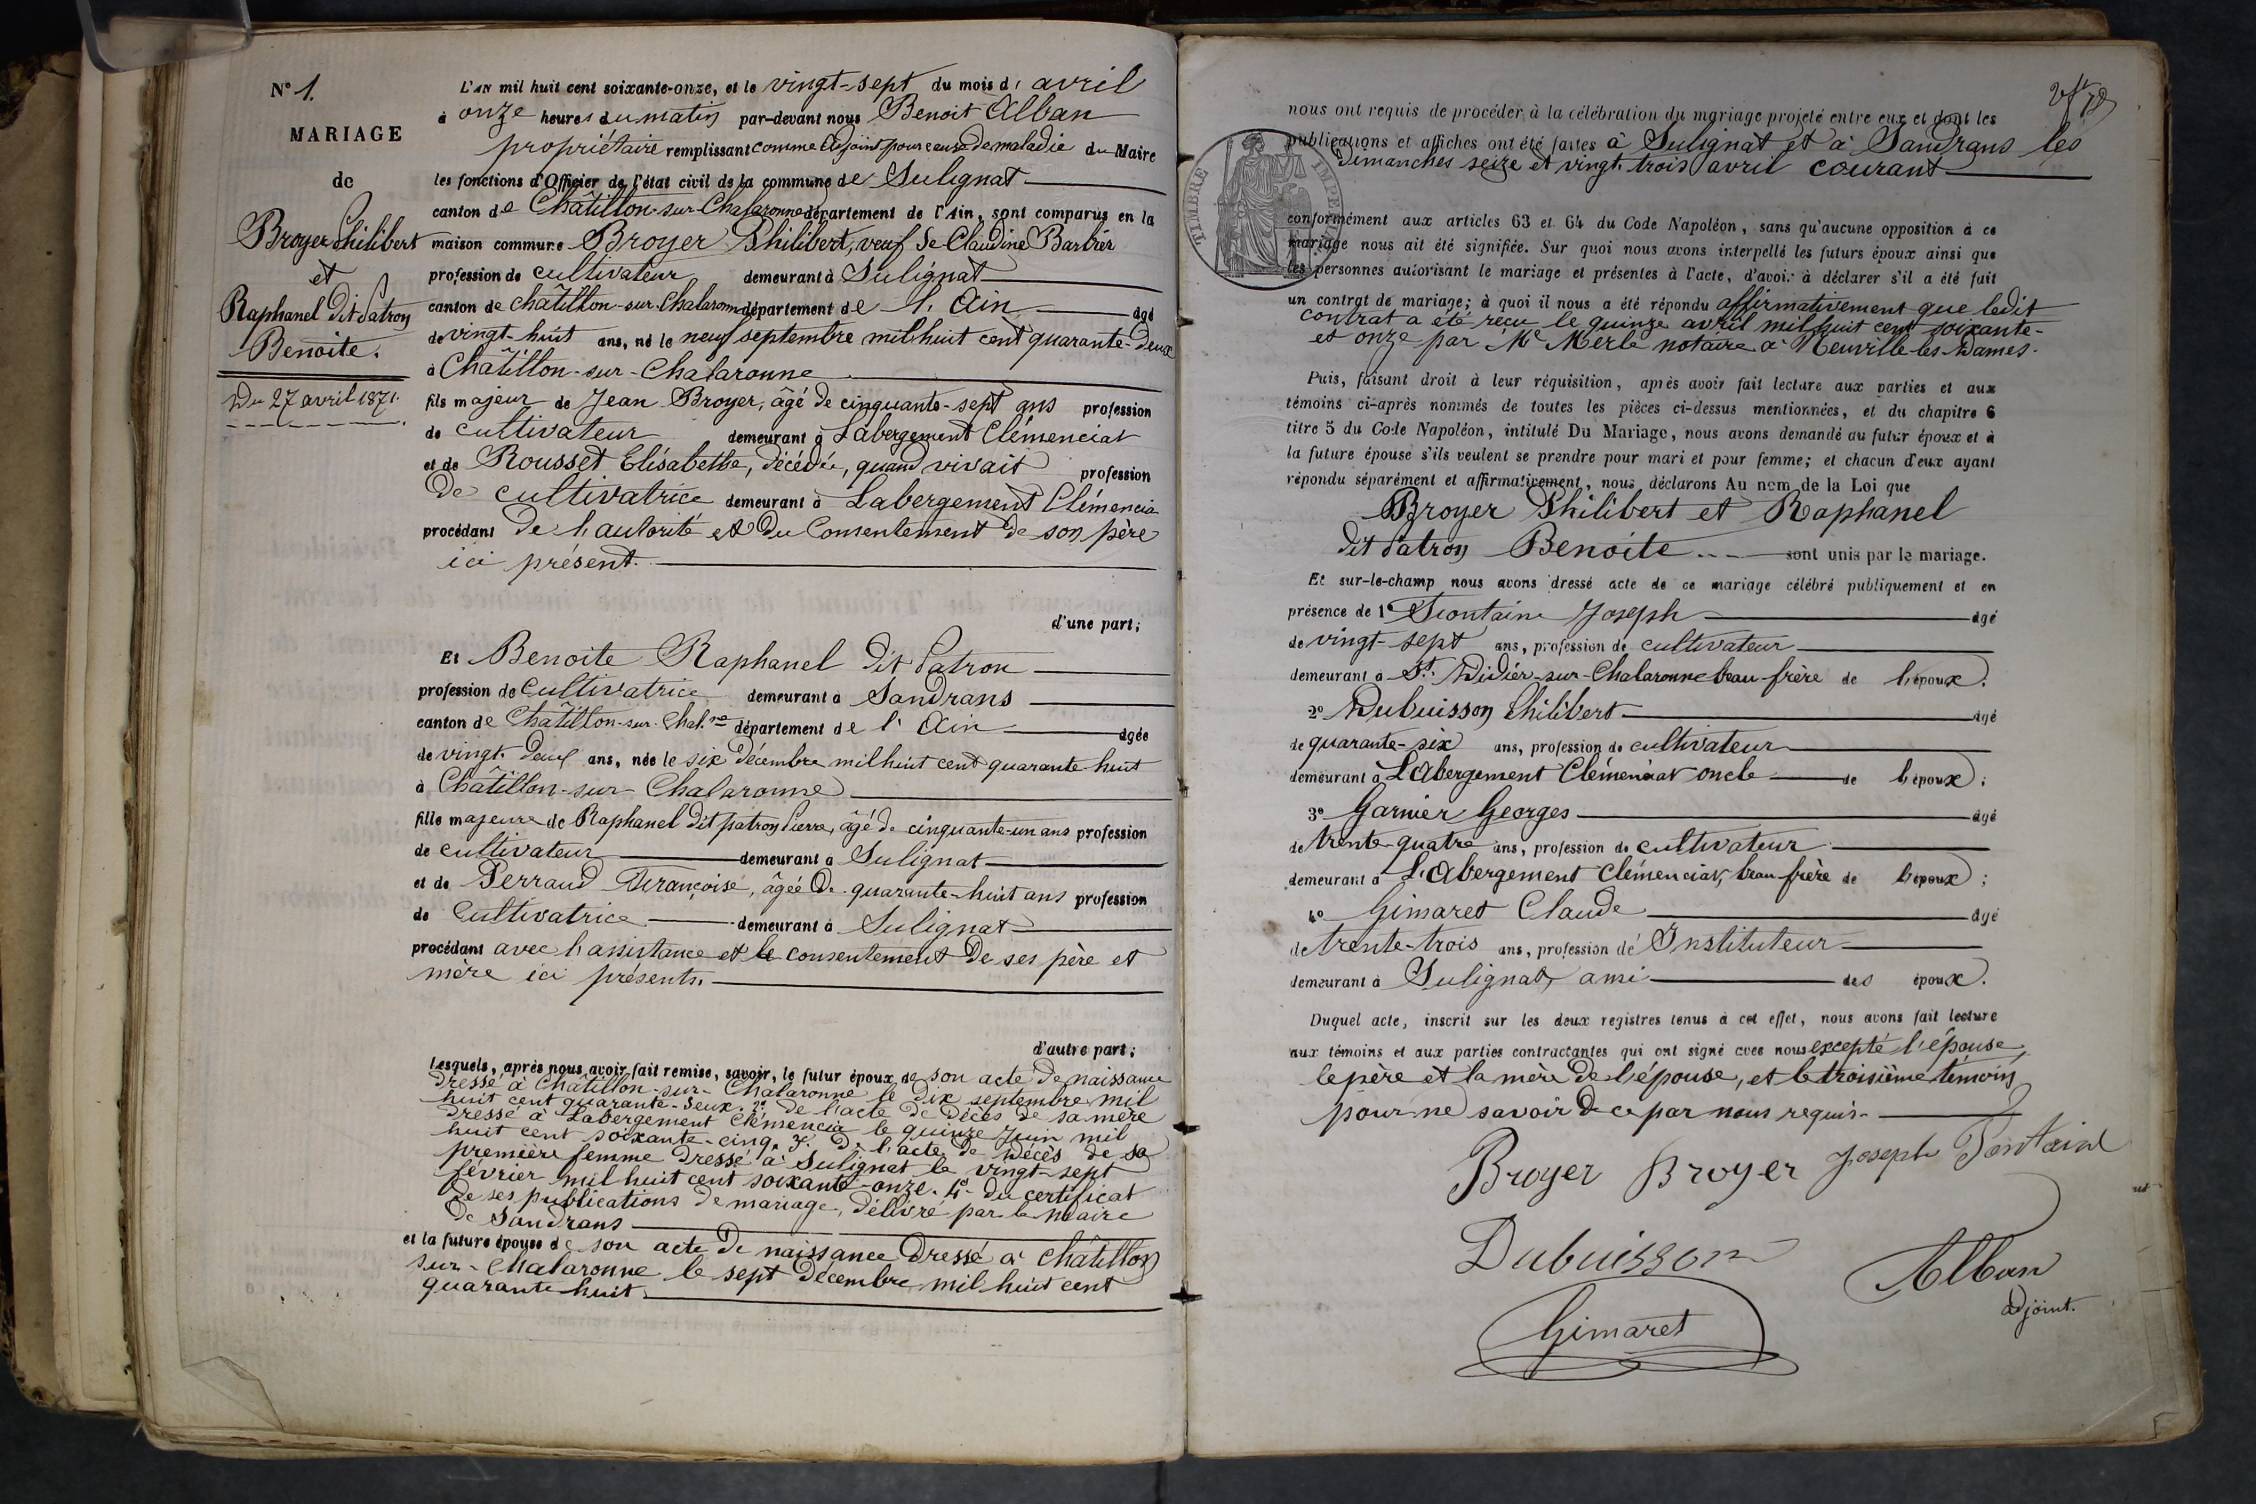 N° 1.
MARIAGE
de
Broyer Philibert
et
Raphanel dit Patron
Benoite.
Du 27 avril 1871.
L'AN mil huit cent soixante-onze, et le vingt-sept du mois d' avril
à onze heures du matin par-devant nous Benoit Alban
propriétaire remplissant comme adjoint pour cause de maladie du Maire
les fonctions d'Officier de l'état civil de la commune de Sulignat
canton de Châtillon-sur-Chalaronne département de l'Ain, sont comparus en la
maison commune Broyer Philibert, veuf de Claudine Barbier
profession de cultivateur demeurant à Sulignat
canton de châtillon-sur-Chalaronne département de l'Ain âgé
de vingt-huit ans, né le neuf septembre mil huit cent quarante-deux
à Châtillon-sur-Chalaronne
fils majeur de Jean Broyer, âgé de cinquante-sept ans profession
de cultivateur demeurant à Labergement Clémenciat
et de Rousset Elisabethe, décédée, quand vivait profession
de cultivatrice demeurant à Labergement Clémencia
procédant de l'autorité et du Consentement de son père
ici présent.
d'une part;
Et Benoite Raphanel dit Patron
profession de Cultivatrice demeurant à Sandrans
canton de Châtillon-sur-Chal.ne département de l'Ain âgée
de vingt-deux ans, née le six décembre mil huit cent quarante-huit
à Châtillon-sur-Chalaronne
fille majeure de Raphanel dit patron Pierre, âgé de cinquante-un ans profession
de cultivateur demeurant à Sulignat
et de Perraud Françoise, âgée de quarante-huit ans profession
de Cultivatrice demeurant à Sulignat
procédant avec l'assistance et le consentement de ses père et
mère ici présents.
d'autre part;
Lesquels, après nous avoir fait remise, savoir, le futur époux de son acte de naissance
dressé à Châtillon-sur-Chalaronne le dix septembre mil
huit cent quarante-deux. 2° de l'acte de décès de sa mère
dressé à Labergement Clémencia le quinze Juin mil
huit cent soixante-cinq. 3° de l'acte de décès de sa
première femme dressé à Sulignat le vingt-sept
février mil huit cent soixante-onze. 4° du certificat
de ses publications de mariage, délivré par le Maire
de Sandrans
et la future épouse de son acte de naissance dressé à Châtillon
sur-Chalaronne le sept décembre mil huit cent
quarante-huit.
nous ont requis de procéder à la célébration du mariage projeté entre eux et dont les
publications et affiches ont été faites à Sulignat et à Sandrans les
dimanches seize et vingt-trois avril courant
TIMBRE IMPERIAL
conformément aux articles 63 et 64 du Code Napoléon, sans qu'aucune opposition à ce
mariage nous ait été signifiée. Sur quoi nous avons interpellé les futurs époux ainsi que
les personnes autorisant le mariage et présentes à l'acte, d'avoir à déclarer s'il a été fait
un contrat de mariage; à quoi il nous a été répondu affirmativement que ledit
contrat a été reçu le quinze avril mil huit cent soixante-
et onze par Me Merle notaire à Neuville-les-Dames.
Puis, faisant droit à leur réquisition, après avoir fait lecture aux parties et aux
témoins ci-après nommés de toutes les pièces ci-dessus mentionnées, et du chapitre 6
titre 5 du Code Napoléon, intitulé Du Mariage, nous avons demandé au futur époux et à
la future épouse s'ils veulent se prendre pour mari et pour femme; et chacun d'eux ayant
répondu séparément et affirmativement, nous déclarons Au nom de la Loi que
Broyer Philibert et Raphanel
dit Patron Benoite sont unis par le mariage.
Et sur-le-champ nous avons dressé acte de ce mariage célébré publiquement et en
présence de 1° Fontaine Joseph âgé
de vingt-sept ans, profession de cultivateur
demeurant à St. Didier-sur-Chalaronne beau-frère de l'époux.
2° Dubuisson Philibert âgé
de quarante-six ans, profession de cultivateur
demeurant à L'Abergement Clémenciat oncle de l'époux;
3° Garnier Georges âgé
de trente-quatre ans, profession de cultivateur
demeurant à L'Abergement Clémenciat, beau-frère de l'époux;
4° Gimaret Claude âgé
de trente-trois ans, profession de Instituteur
demeurant à Sulignat, ami des époux.
Duquel acte, inscrit sur les deux registres tenus à cet effet, nous avons fait lecture
aux témoins et aux parties contractantes qui ont signé avec nous excepté l'épouse,
le père et la mère de l'épouse, et le troisième témoin
pour ne savoir de ce par nous requis.
Broyer Broyer Joseph Fontaine
Dubuisson
Alban
adjoint.
Gimaret